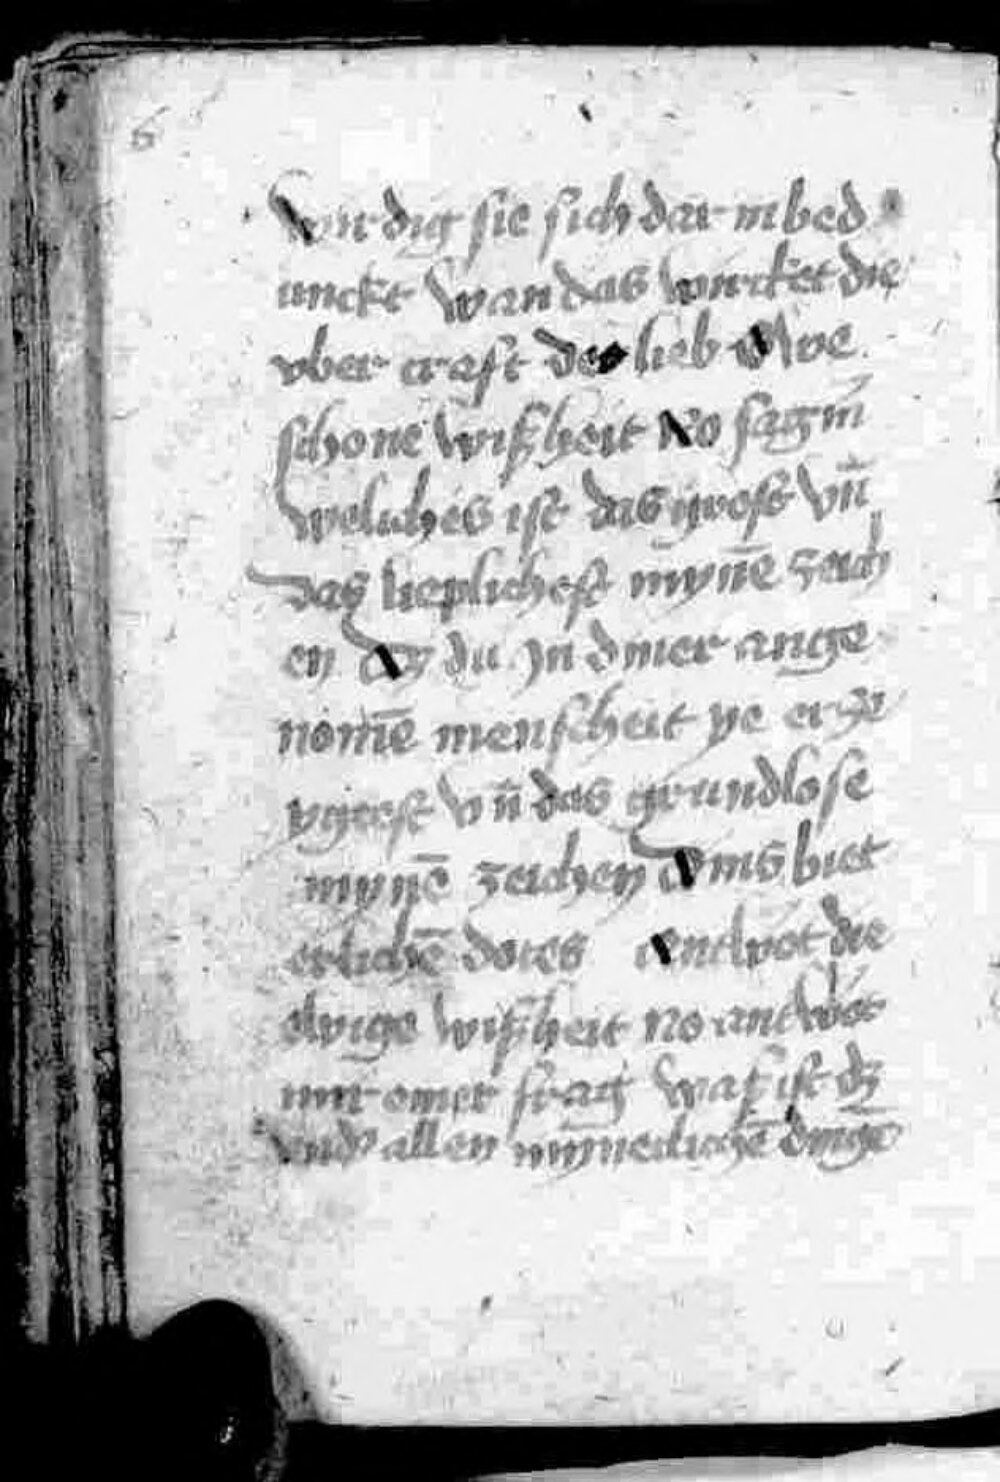 wirdig sie sich dar in bed
unckt wan das wircket die
vber craft der lieb Awe
schone wißheit No sag mir
weliches ist das grost vñ
das lieplichest mỹne zeich
en Dz du In diner ange
nomẽ menscheit ye erzei
ygtest vñ das grundlose
mynẽ zeichen dins biet
erlichẽ dotes antwot die
ewige wißheit No antwot
mir einer frag waß ist dz
vnder allen mỹneclichẽ dingẽ